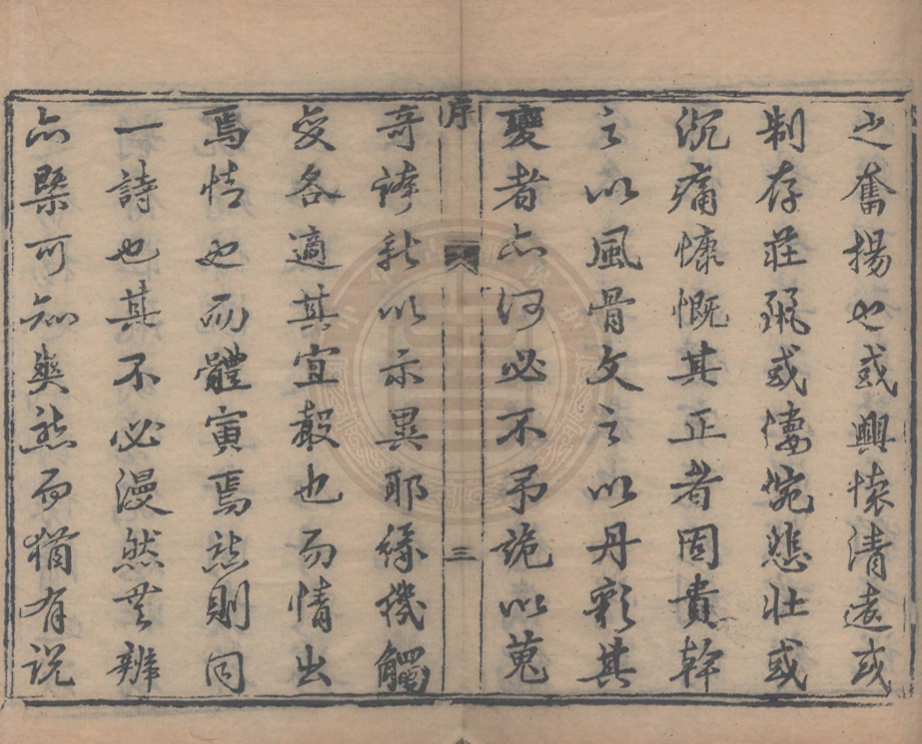 之奮揚也或興懷清遠或
制存莊飛或悽惋悲壯或
沉痛慷慨其正者固貴幹
之以風骨文之以丹彩其
變者亦何必不予詭以蒐
序
三
奇誇新以示異耶緣機觸
發各適其宜聲也而情出
焉情也而體寅焉然則同
一詩也其不必漫然無辨
亦槩可知矣然而猶有說